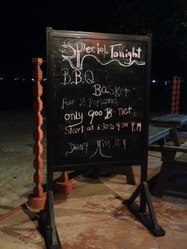 Special Tonight
B.B.Q
Basket
For 2 Persons
only 900 B. net.
Start at 6.30 to 9.30 P.M
Don't Miss It!